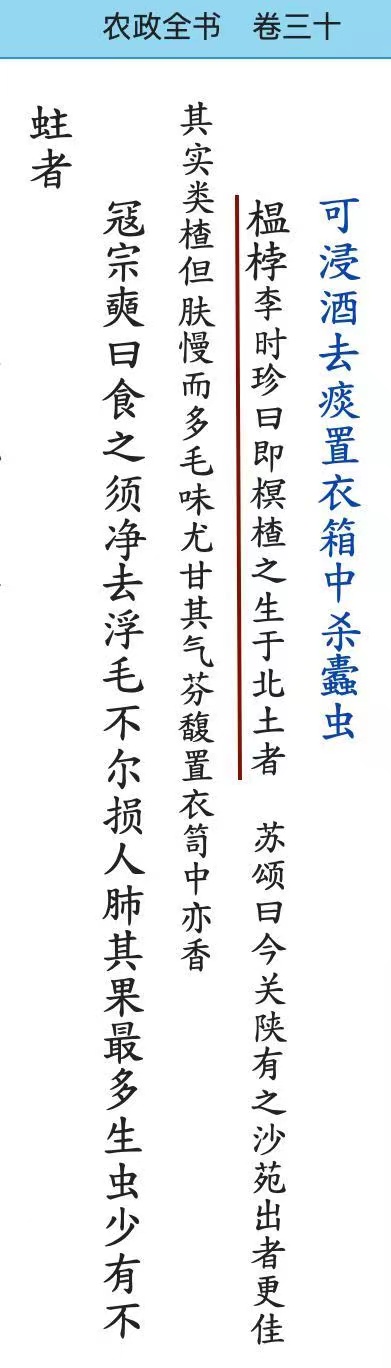 农政全书 卷三十
可浸酒去痰置衣箱中杀蠹虫
榅桲李时珍曰即榠楂之生于北土者 苏颂曰今关陕有之沙苑出者更佳
其实类楂但肤慢而多毛味尤甘其气芬馥置衣笥中亦香
冦宗奭曰食之须净去浮毛不尔损人肺其果最多生虫少有不
蛀者